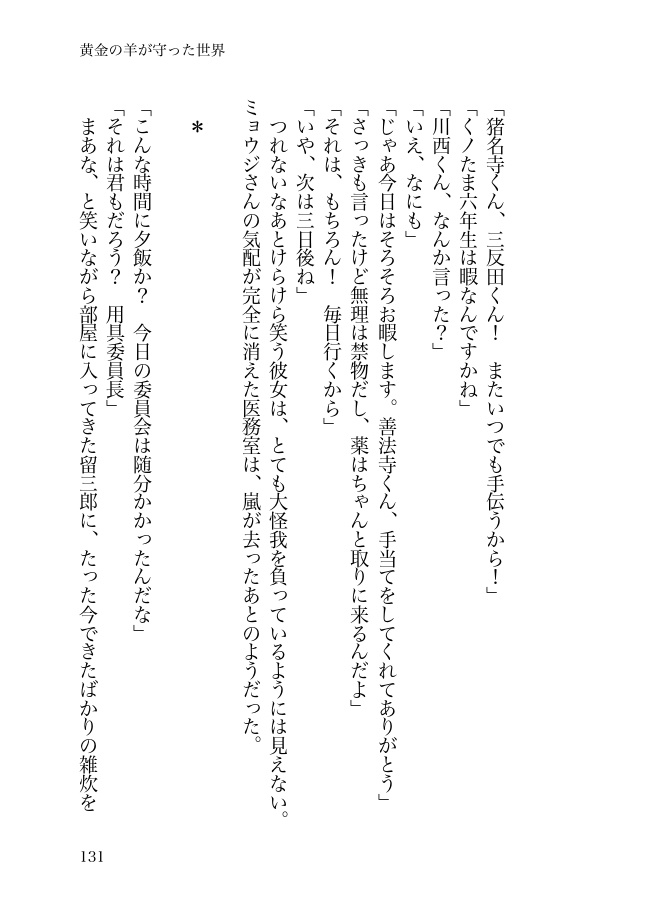 黄金の羊が守った世界
「猪名寺くん、三反田くん！　またいつでも手伝うから！」
「くノたま六年生は暇なんですかね」
「川西くん、なんか言った？」
「いえ、なにも」
「じゃあ今日はそろそろお暇します。善法寺くん、手当てをしてくれてありがとう」
「さっきも言ったけど無理は禁物だし、薬はちゃんと取りに来るんだよ」
「それは、もちろん！　毎日行くから」
「いや、次は三日後ね」
　つれないなあとけらけら笑う彼女は、とても大怪我を負っているようには見えない。
ミョウジさんの気配が完全に消えた医務室は、嵐が去ったあとのようだった。
＊
「こんな時間に夕飯か？　今日の委員会は随分かかったんだな」
「それは君もだろう？　用具委員長」
　まあな、と笑いながら部屋に入ってきた留三郎に、たった今できたばかりの雑炊を
131